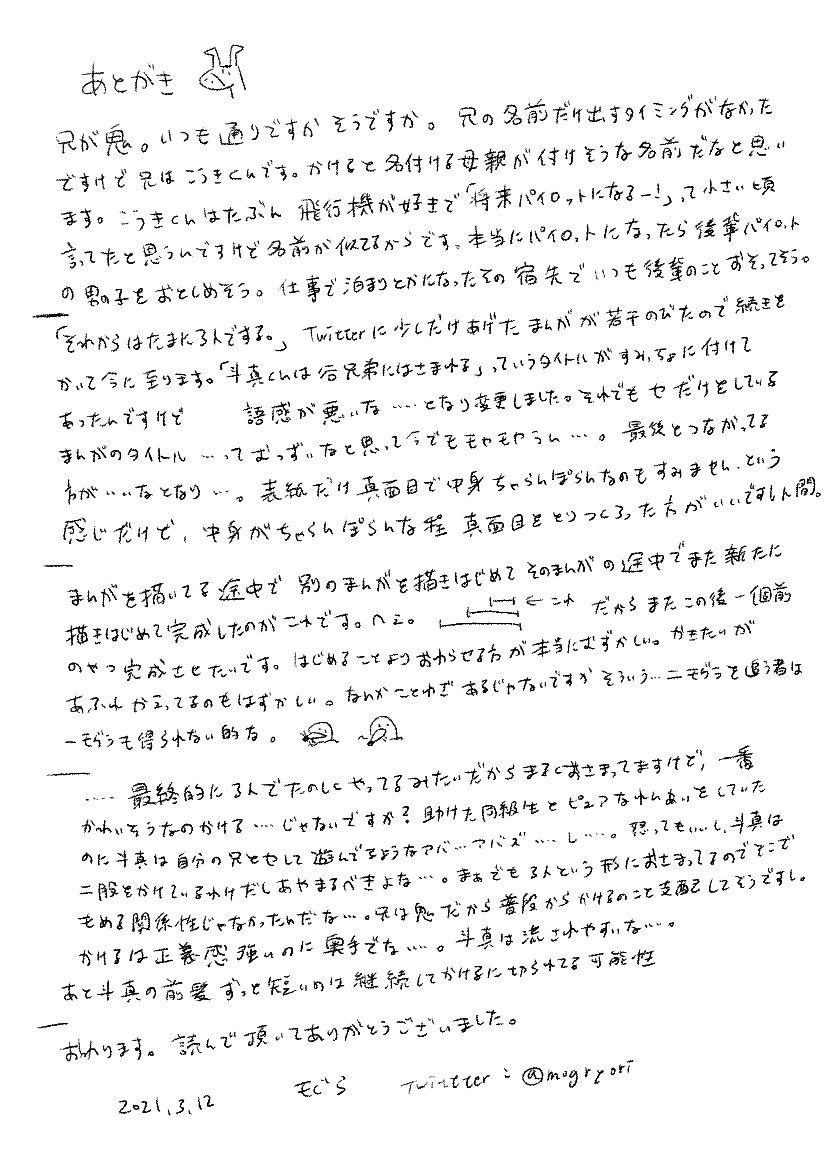 あとがき
兄が鬼。いつも通りですか そうですか。 兄の名前だけ出すタイミングがなかった
ですけど兄はこうきくんです。かけると名付ける母親が付けそうな名前だなと思い
ます。こうきくんはたぶん 飛行機が好きで「将来パイロットになるー!」って小さい頃
言ってたと思うんですけど名前が似てるからです、本当にパイロットになったら後輩パイロット
の男の子をおとしめそう。仕事で泊まりとかになったその宿先でいつも後輩のこと おそってそう。
「それからはたまに3人でする。」 Twitterに少しだけあげた まんがが若干のびたので続きを
かいて今に至ります。「斗真くんは谷兄弟にはさまれる」っていうタイトルがすみっちょに付けて
あったんですけど 語感が悪いな……となり変更しました。それでも セ だけとしている
まんがのタイトル …ってむっずいなと思って今でもモヤモヤうん…。 最後とつながってる
方がいいなとなり…。表紙だけ真面目で中身ちゃらんぽらんなのもすみません、という
感じだけど、中身がちゃらんぽらんな程 真面目をとりつくろった方がいいですし人間。
まんがを描いてる途中で 別のまんがを描きはじめて そのまんがの途中でまた新たに
描きはじめて完成したのがこれです。へぇ。 ← これ だからまたこの後一個前
のやつ完成させたいです。はじめることよりおわらせる方が本当にむずかしい。かきたいが
あふれかえってるのもはずかしい。なんかことわざ あるじゃないですか そういう…二モグラを追う者は
一モグラも得られない的な。
…… 最終的に3人でたのしくやってるみたいだからまるくおさまってますけど、一番
かわいそうなのかける…じゃないですか?助けた同級生とピュアなれんあいをしていた
のに斗真は自分の兄とセして遊んでるようなアバ…アバズ……し…。怒ってもいいし、斗真は
二股をかけているわけだしあやまるべきよな…。まぁでも3人という形におさまってるのでそこで
もめる関係性じゃなかったんだな…。兄は鬼だから普段からかけるのこと支配してそうですし。
かけるは正義感強いのに奥手でな…。斗真は流されやすいな…。
あと斗真の前髪ずっと短いのは継続してかけるに切られてる可能性
おわります。読んで頂いてありがとうございました。
2021.3.12 もぐら Twitter:@mogryori